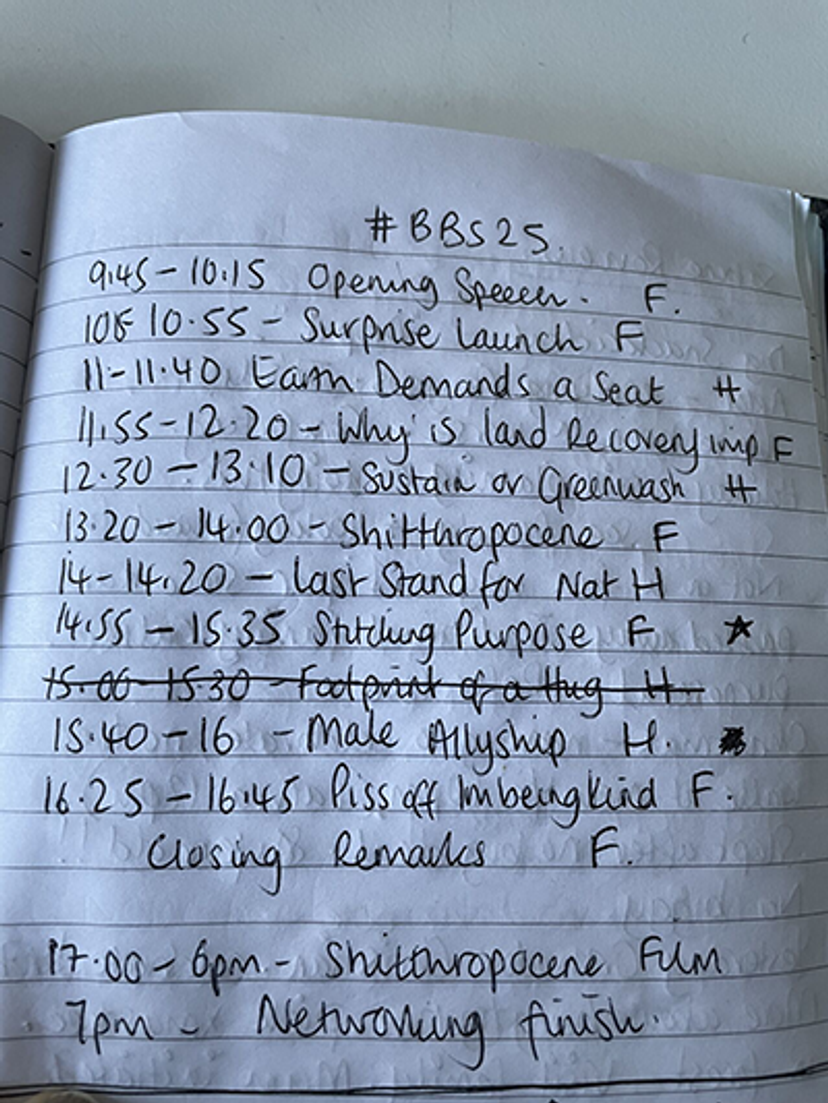 #BBS25.
9.45-10.15 Opening Speech. F.
10.55 - Surprise Launch F
11-11.40 Earth Demands a Seat H
11.55-12.20 - Why is land Recovery imp F
12.30 - 13.10 - Sustain or Greenwash H
13.20 - 14.00 - Shitthropocene F
14-14.20 - Last Stand for Nat H
14.55 - 15.35 Stitching Purpose F ★
15.00-15.30 - Footprint of a Hug H
15.40-16 - Male Allyship H.
16.25 - 16.45 Piss off Im being Kind F.
Closing Remarks F.
17.00 - 6pm - Shitthropocene Film
7pm - Networking finish.